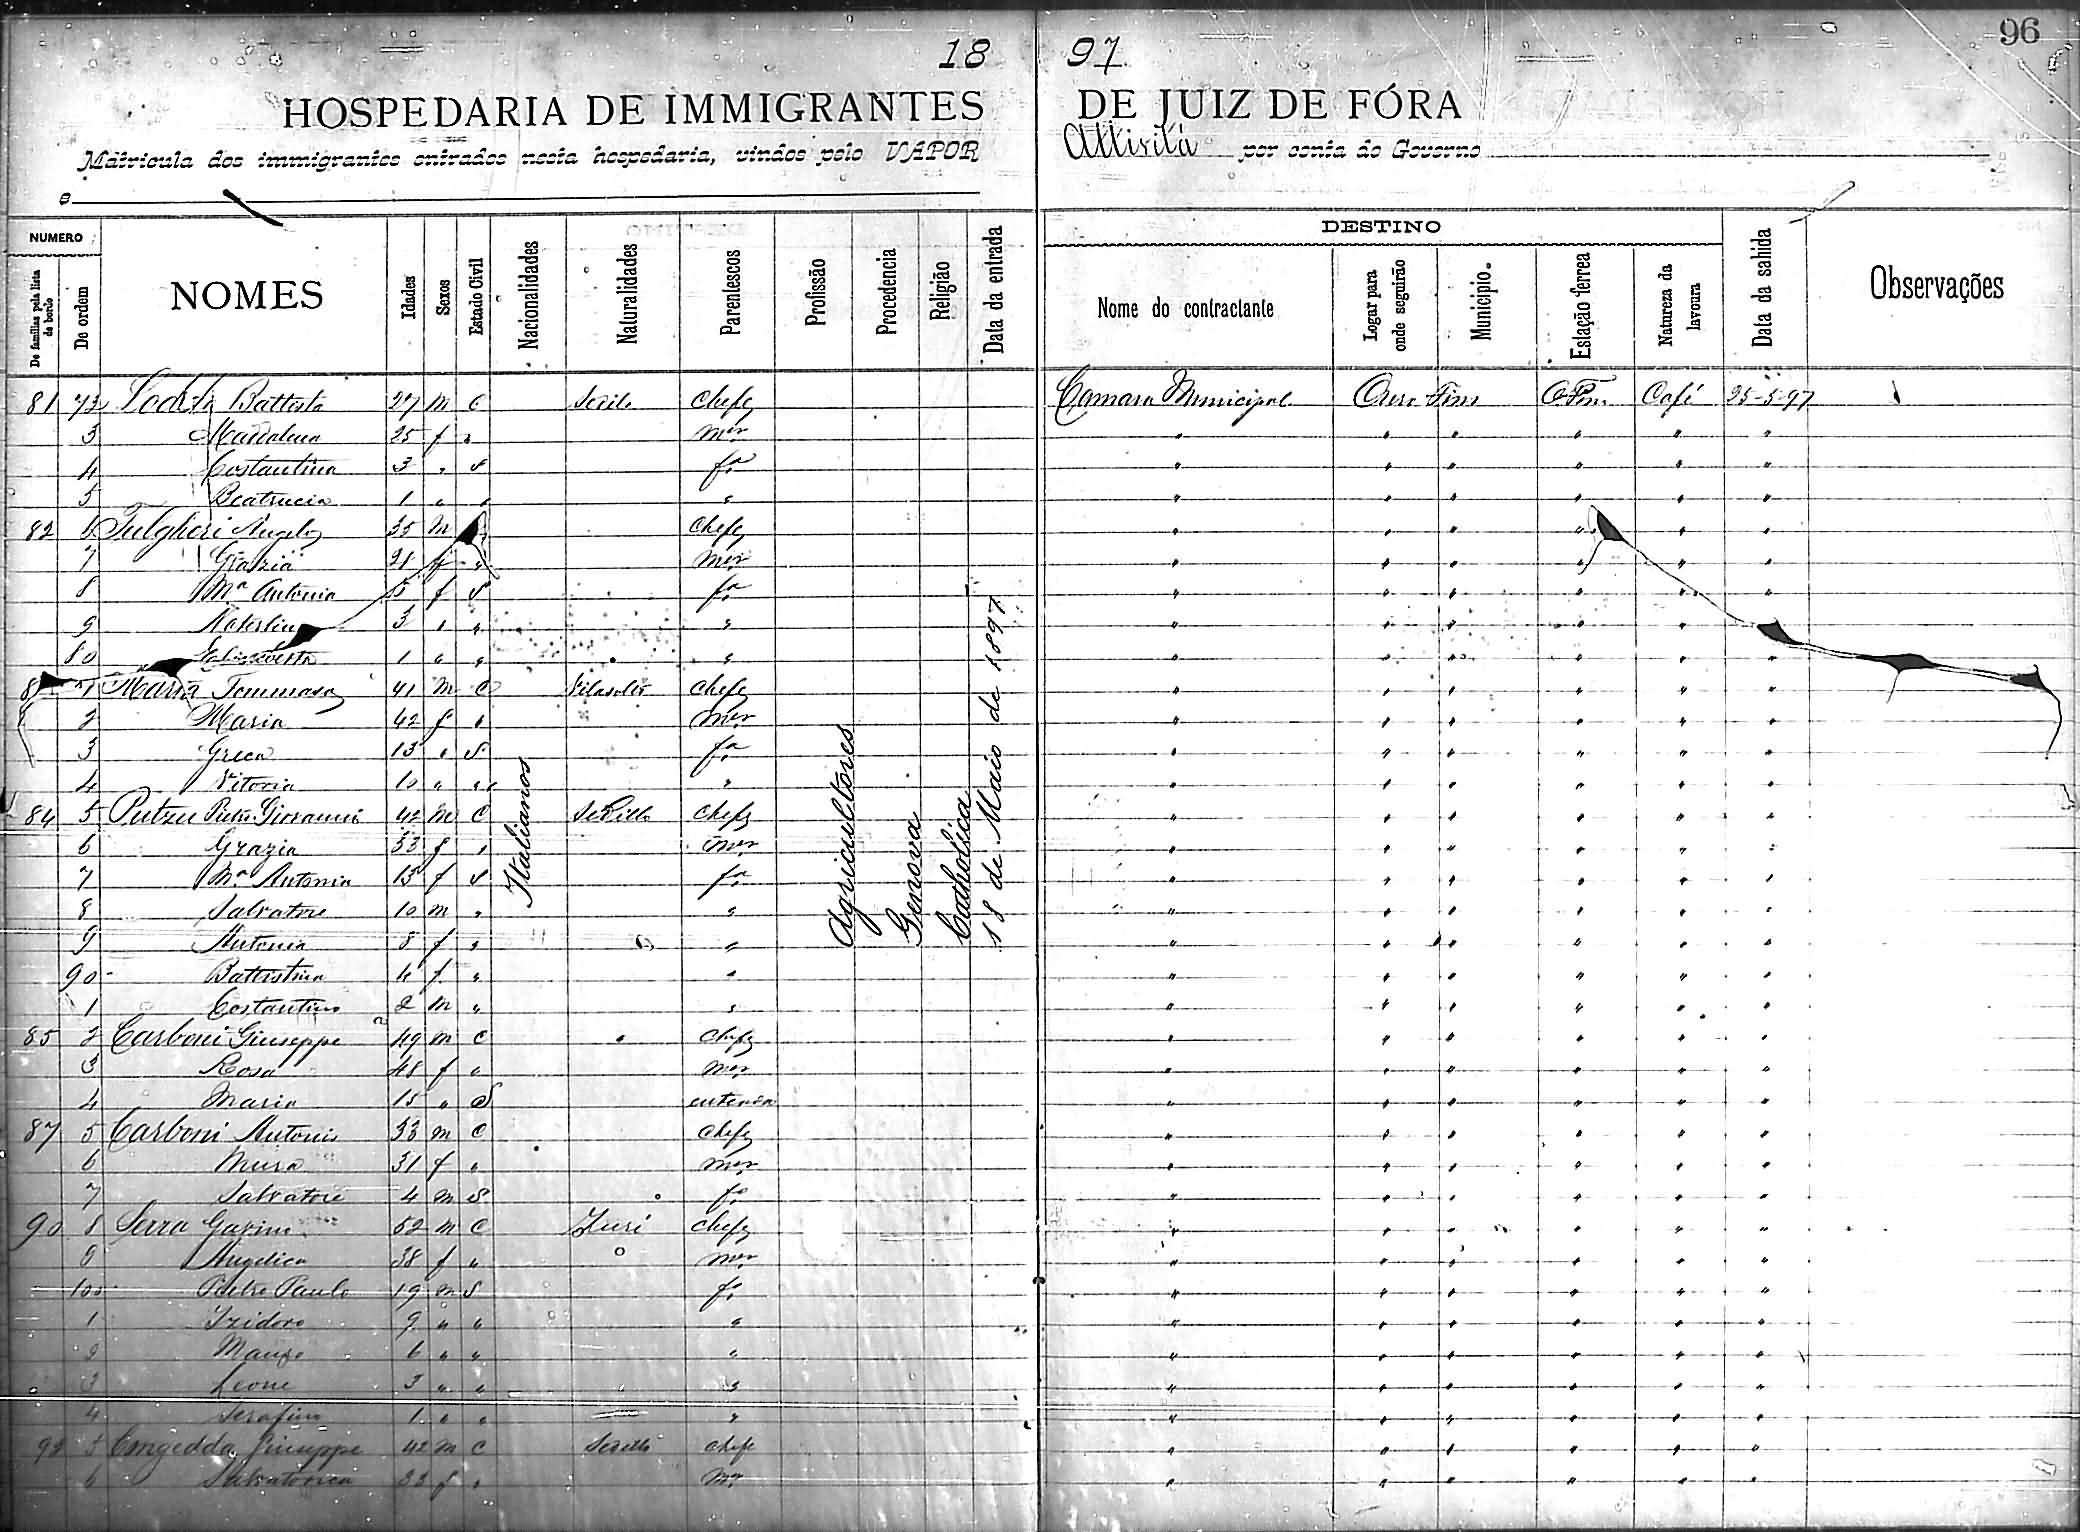 96
18 97
HOSPEDARIA DE IMMIGRANTES DE JUIZ DE FÓRA
Matricula dos immigrantes entrados nesta hospedaria, vindos pelo VAPOR Attività por conta do Governo
e
NUMERO
De familias pela lista de bordo
De ordem
NOMES
Idades
Sexos
Estado Civil
Nacionalidades
Naturalidades
Parentescos
Profissão
Procedencia
Religião
Data da entrada
DESTINO
Nome do contractante
Logar para onde seguirão
Municipio.
Estação ferrea
Natureza da lavoura
Data da sahida
Observações
81 73 Battista 27 m c Chefe Camara Municipal Ouro Fino O Fino Café 25-5-97
3 Maddalena 25 f " mer " " " " " "
4 Costantina 3 " s fa " " " " " "
5 1 " " " " " " " " "
82 6 Fulgheri Angelo 35 m Chefe " " " " " "
7 Grazia 21 f " mer " " " " " "
8 Ma Antonia 5 f s fa " " " " " "
9 3 " " " " " " " " "
80 1 " " " " " " " " " "
1 Tommaso 41 m c Chefe " " " " " "
2 Maria 42 f " mer " " " " " "
3 Greca 13 " s fa " " " " " "
4 Vitoria 10 " " " " " " " " "
84 5 Putzu Pietro Giovanni 42 m c Sedilo Chefe " " " " " "
6 Grazia 33 f " mer " " " " " "
7 Ma Antonia 13 f s fa " " " " " "
8 Salvatore 10 m " " " " " " " "
9 Antonia 8 f " " " " " " " "
90 Battistina 4 f " " " " " " " "
1 Costantino 2 m " " " " " " " "
85 2 Carboni Giuseppe 49 m c " Chefe " " " " " "
3 Rosa 48 f " mer " " " " " "
4 Maria 15 " S enteada " " " " " "
87 5 Carboni Antonio 33 m c Chefe " " " " " "
6 Mura 31 f " mer " " " " " "
7 Salvatore 4 m s fo " " " " " "
90 8 Serra Gavino 52 m c Zuri Chefe " " " " " "
9 Angelica 38 f " mer " " " " " "
100 Pietro Paulo 19 m s fo " " " " " "
1 Izidoro 9 " " " " " " " " "
2 6 " " " " " " " " "
3 Leone 3 " " " " " " " " "
4 Serafino 1 " " " " " " " " "
92 5 Congedda Giuseppe 42 m c Sedilo Chefe " " " " " "
6 Salvatorica 33 f " mr " " " " " "
Italianos
Agricultores
Genova
Catholica
18 de Maio de 1897